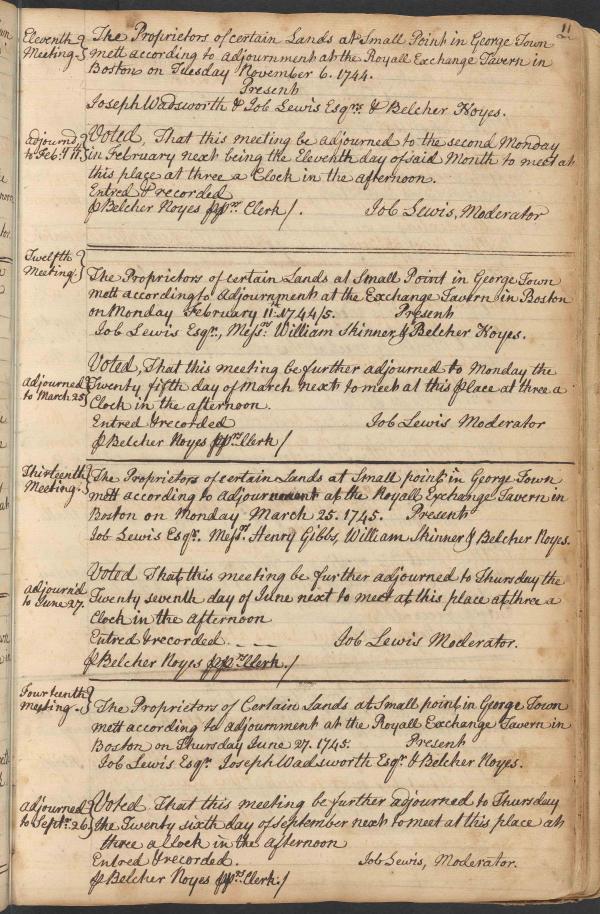 11
Eleventh Meeting.
The Proprietors of certain Lands at Small Point in George Town
mett according to adjournment at the Royall Exchange Tavern in
Boston on Tuesday November 6. 1744.
Present
Joseph Wadsworth & Job Lewis Esqrs & Belcher Noyes.
adjournd to Feb. 11.
Voted, That this meeting be adjourned to the second Monday
in February next being the Eleventh day of said Month to meet at
this place at three a Clock in the afternoon.
Entred & recorded
℔ Belcher Noyes pprs Clerk/. Job Lewis, Moderator
Twelfth Meeting.
The Proprietors of certain Lands at Small Point in George Town
mett according to adjournment at the Exchange Tavern in Boston
on Monday February 11: 1744/5. Present
Job Lewis Esqr., Messrs William Skinner, & Belcher Noyes.
Voted, That this meeting be further adjourned to Monday the
Adjourned to March 25
Twenty fifth day of March next to meet at this place at three a
Clock in the afternoon.
Entred & recorded Job Lewis Moderator
℔ Belcher Noyes pprs Clerk/
Thirteenth Meeting.
The Proprietors of certain Lands at Small point in George Town
mett according to adjournment at the Royall Exchange Tavern in
Boston on Monday March 25. 1745. Present
Job Lewis Esqr. Messrs. Henry Gibbs, William Skinner & Belcher Noyes.
Voted That this meeting be further adjourned to Thursday the
adjournd to June 27.
Twenty seventh day of June next to meet at this place at three a
Clock in the afternoon
Entred & recorded. Job Lewis Moderator.
℔ Belcher Noyes pprs Clerk./
Fourteenth meeting.
The Proprietors of Certain Lands at Small point in George Town
mett according to adjournment at the Royall Exchange Tavern in
Boston on Thursday June 27. 1745. Present
Job Lewis Esqr. Joseph Wadsworth Esqr. & Belcher Noyes.
Adjourned to Septr. 26
Voted That this meeting be further adjourned to Thursday
the Twenty sixth day of September next to meet at this place at
three a Clock in the afternoon
Entred & recorded. Job Lewis, Moderator.
℔ Belcher Noyes pprs Clerk./